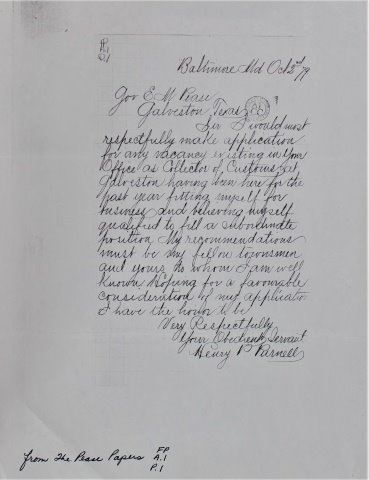 FP
A.1
P.1
Baltimore Md Oct 2nd 79
Gov E. M. Pease
Galveston, Texas
Sir I would most
respectfully make application
for any vacancy existing in your
Office as Collector of Customs at
Galveston having been here for the
past year fitting myself for
business and believing myself
qualified to fill a subordinate
position. My recommendations
must be my fellow townsmen
and yours, to whom I am well
known. Hoping for a favourable
consideration of my applicatio
I have the honor to be
Very Respectfully
Your Obedient Servant
Henry P Parnell
from The Pease Papers FP
A.1
P.1